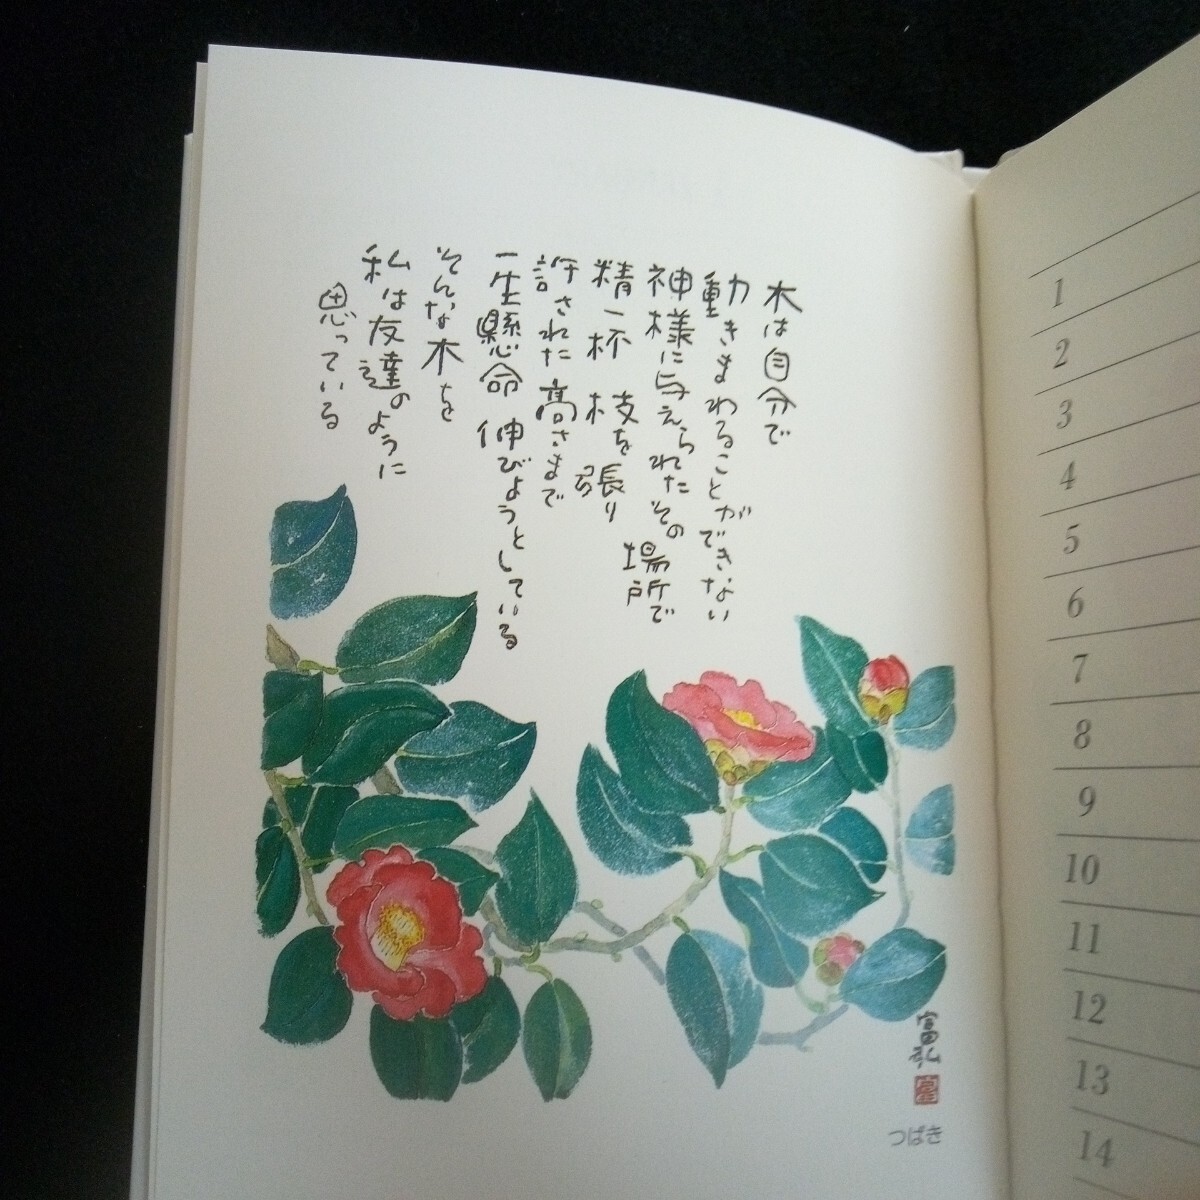 木は自分で
動きまわることができない
神様に与えられたその場所で
精一杯 枝を張り
許された高さまで
一生懸命 伸びようとしている
そんな木を
私は友達のように
思っている
富弘
つばき
1
2
3
4
5
6
7
8
9
10
11
12
13
14